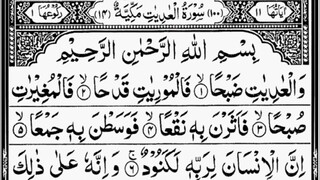 اٰيَاتُهَا ١١ (١٠٠) سُوْرَةُ الْعٰدِيٰتِ مَكِّيَّةٌ (١٤) رُكُوْعُهَا ١
بِسْمِ اللّٰهِ الرَّحْمٰنِ الرَّحِيْمِ
وَالْعٰدِيٰتِ ضَبْحًا ۙ﴿١﴾ فَالْمُوْرِيٰتِ قَدْحًا ۙ﴿٢﴾ فَالْمُغِيْرٰتِ
صُبْحًا ۙ﴿٣﴾ فَاَثَرْنَ بِهٖ نَقْعًا ۙ﴿٤﴾ فَوَسَطْنَ بِهٖ جَمْعًا ۙ﴿٥﴾
اِنَّ الْاِنْسَانَ لِرَبِّهٖ لَكَنُوْدٌ ۚ﴿٦﴾ وَاِنَّهٗ عَلٰى ذٰلِكَ